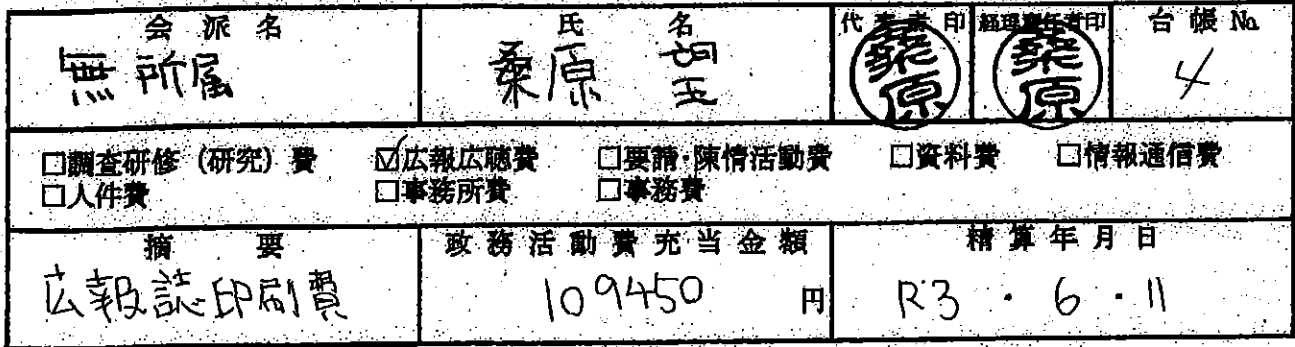 会派名 氏名 代表者印 経理責任者印 台帳No.
無所属 桑原 詞玉 桑原 桑原 4
□調査研修（研究）費 ☑広報広聴費 □要請・陳情活動費 □資料費 □情報通信費
□人件費 □事務所費 □事務費
摘要 政務活動費充当金額 精算年月日
広報誌印刷費 109450円 R3・6・11